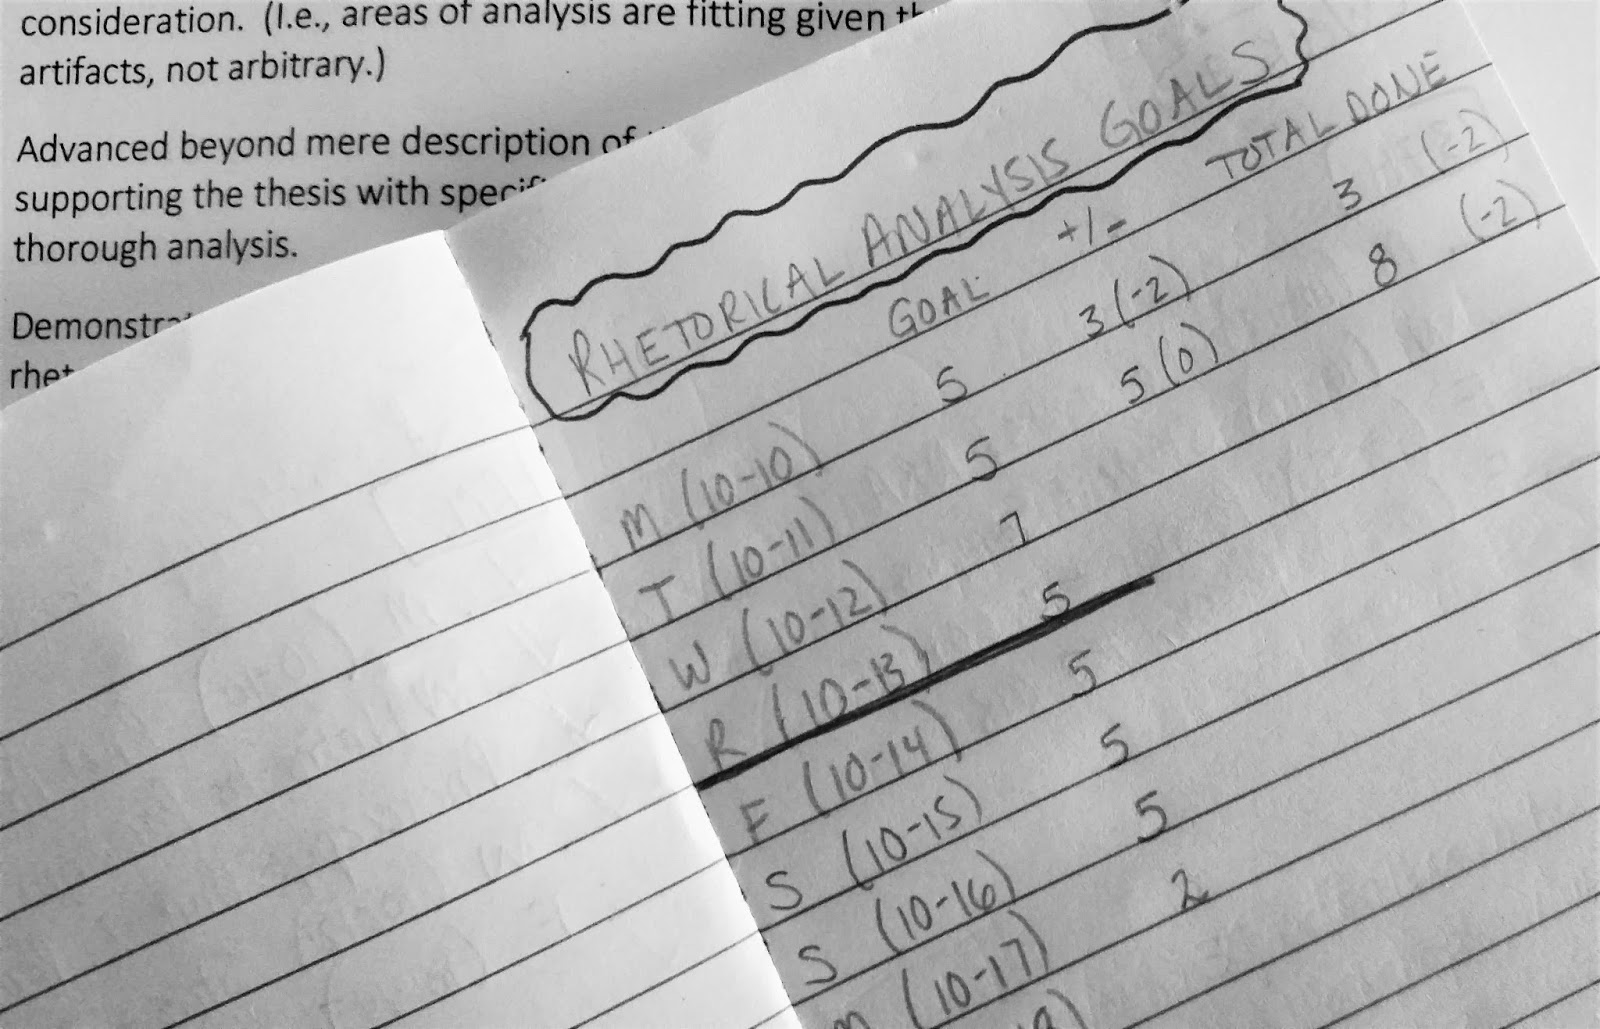 consideration. (I.e., areas of analysis are fitting given th
artifacts, not arbitrary.)
Advanced beyond mere description of
supporting the thesis with specif
thorough analysis.
Demonstra
rhet
RHETORICAL ANALYSIS GOALS
GOAL +/- TOTAL DONE
M (10-10) 5 3 (-2) 3 (-2)
T (10-11) 5 5 (0) 8 (-2)
W (10-12) 7
R (10-13) 5
F (10-14) 5
S (10-15) 5
S (10-16) 5
M (10-17) 2